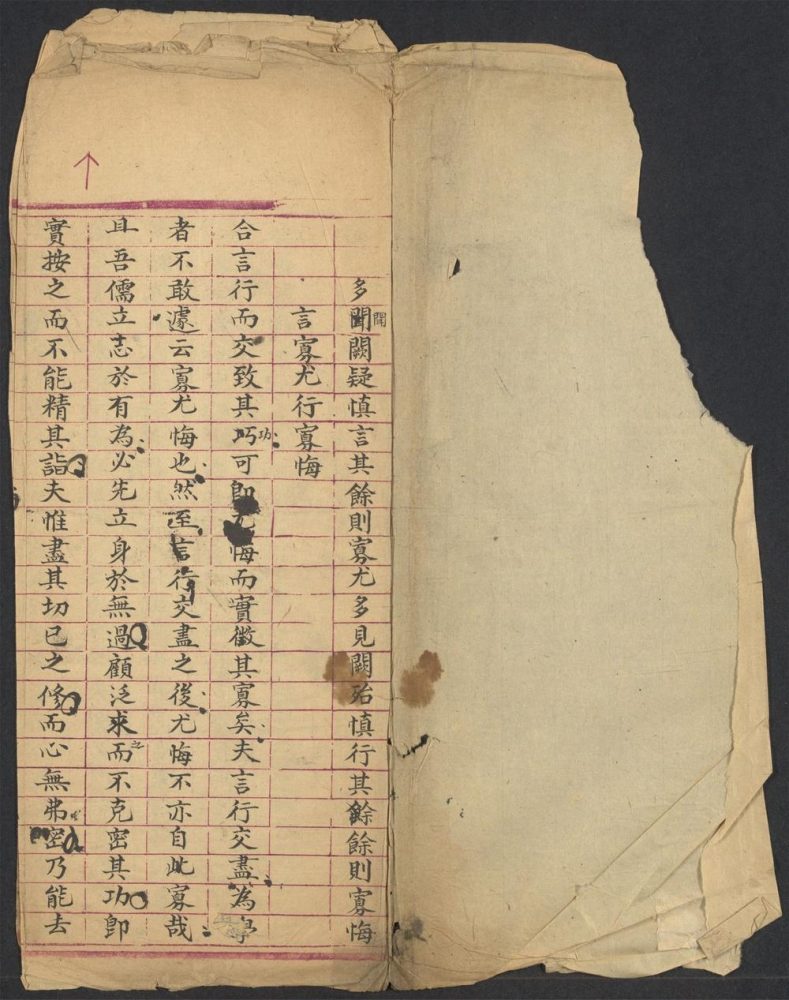 多聞聞闕疑慎言其餘則寡尤多見闕殆慎行其餘餘則寡悔
言寡尤行寡悔
合言行而交致其巧功可即尤悔而實徵其寡矣夫言行交盡為
者不敢遽云寡尤悔也然至言行交盡之後尤悔不亦自此寡哉
且吾儒立志於有為必先立身於無過顧泛求而之不克密其功即
實按之而不能精其詣夫惟盡其切已之修而心無弗密乃能去